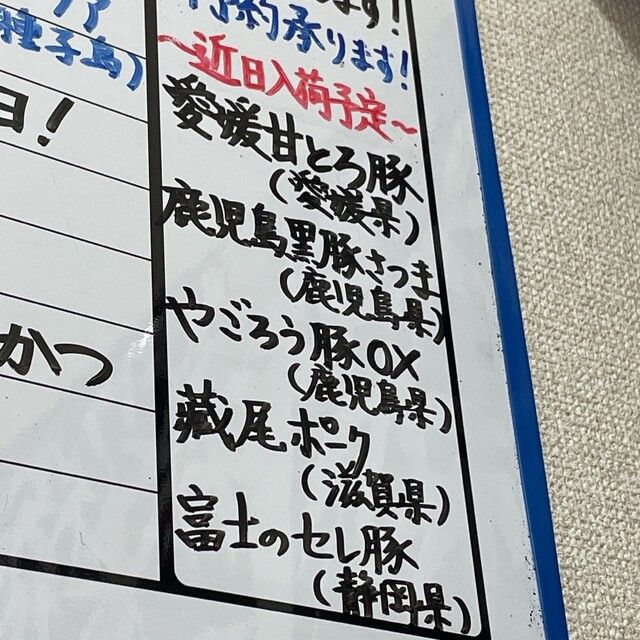 種子島)
日!
かつ
ます!
予約承ります!
~近日入荷予定~
愛媛甘とろ豚
(愛媛県)
鹿児島黒豚さつま
(鹿児島県)
やごろう豚OX
(鹿児島県)
藏尾ポーク
(滋賀県)
富士のセレ豚
(静岡県)